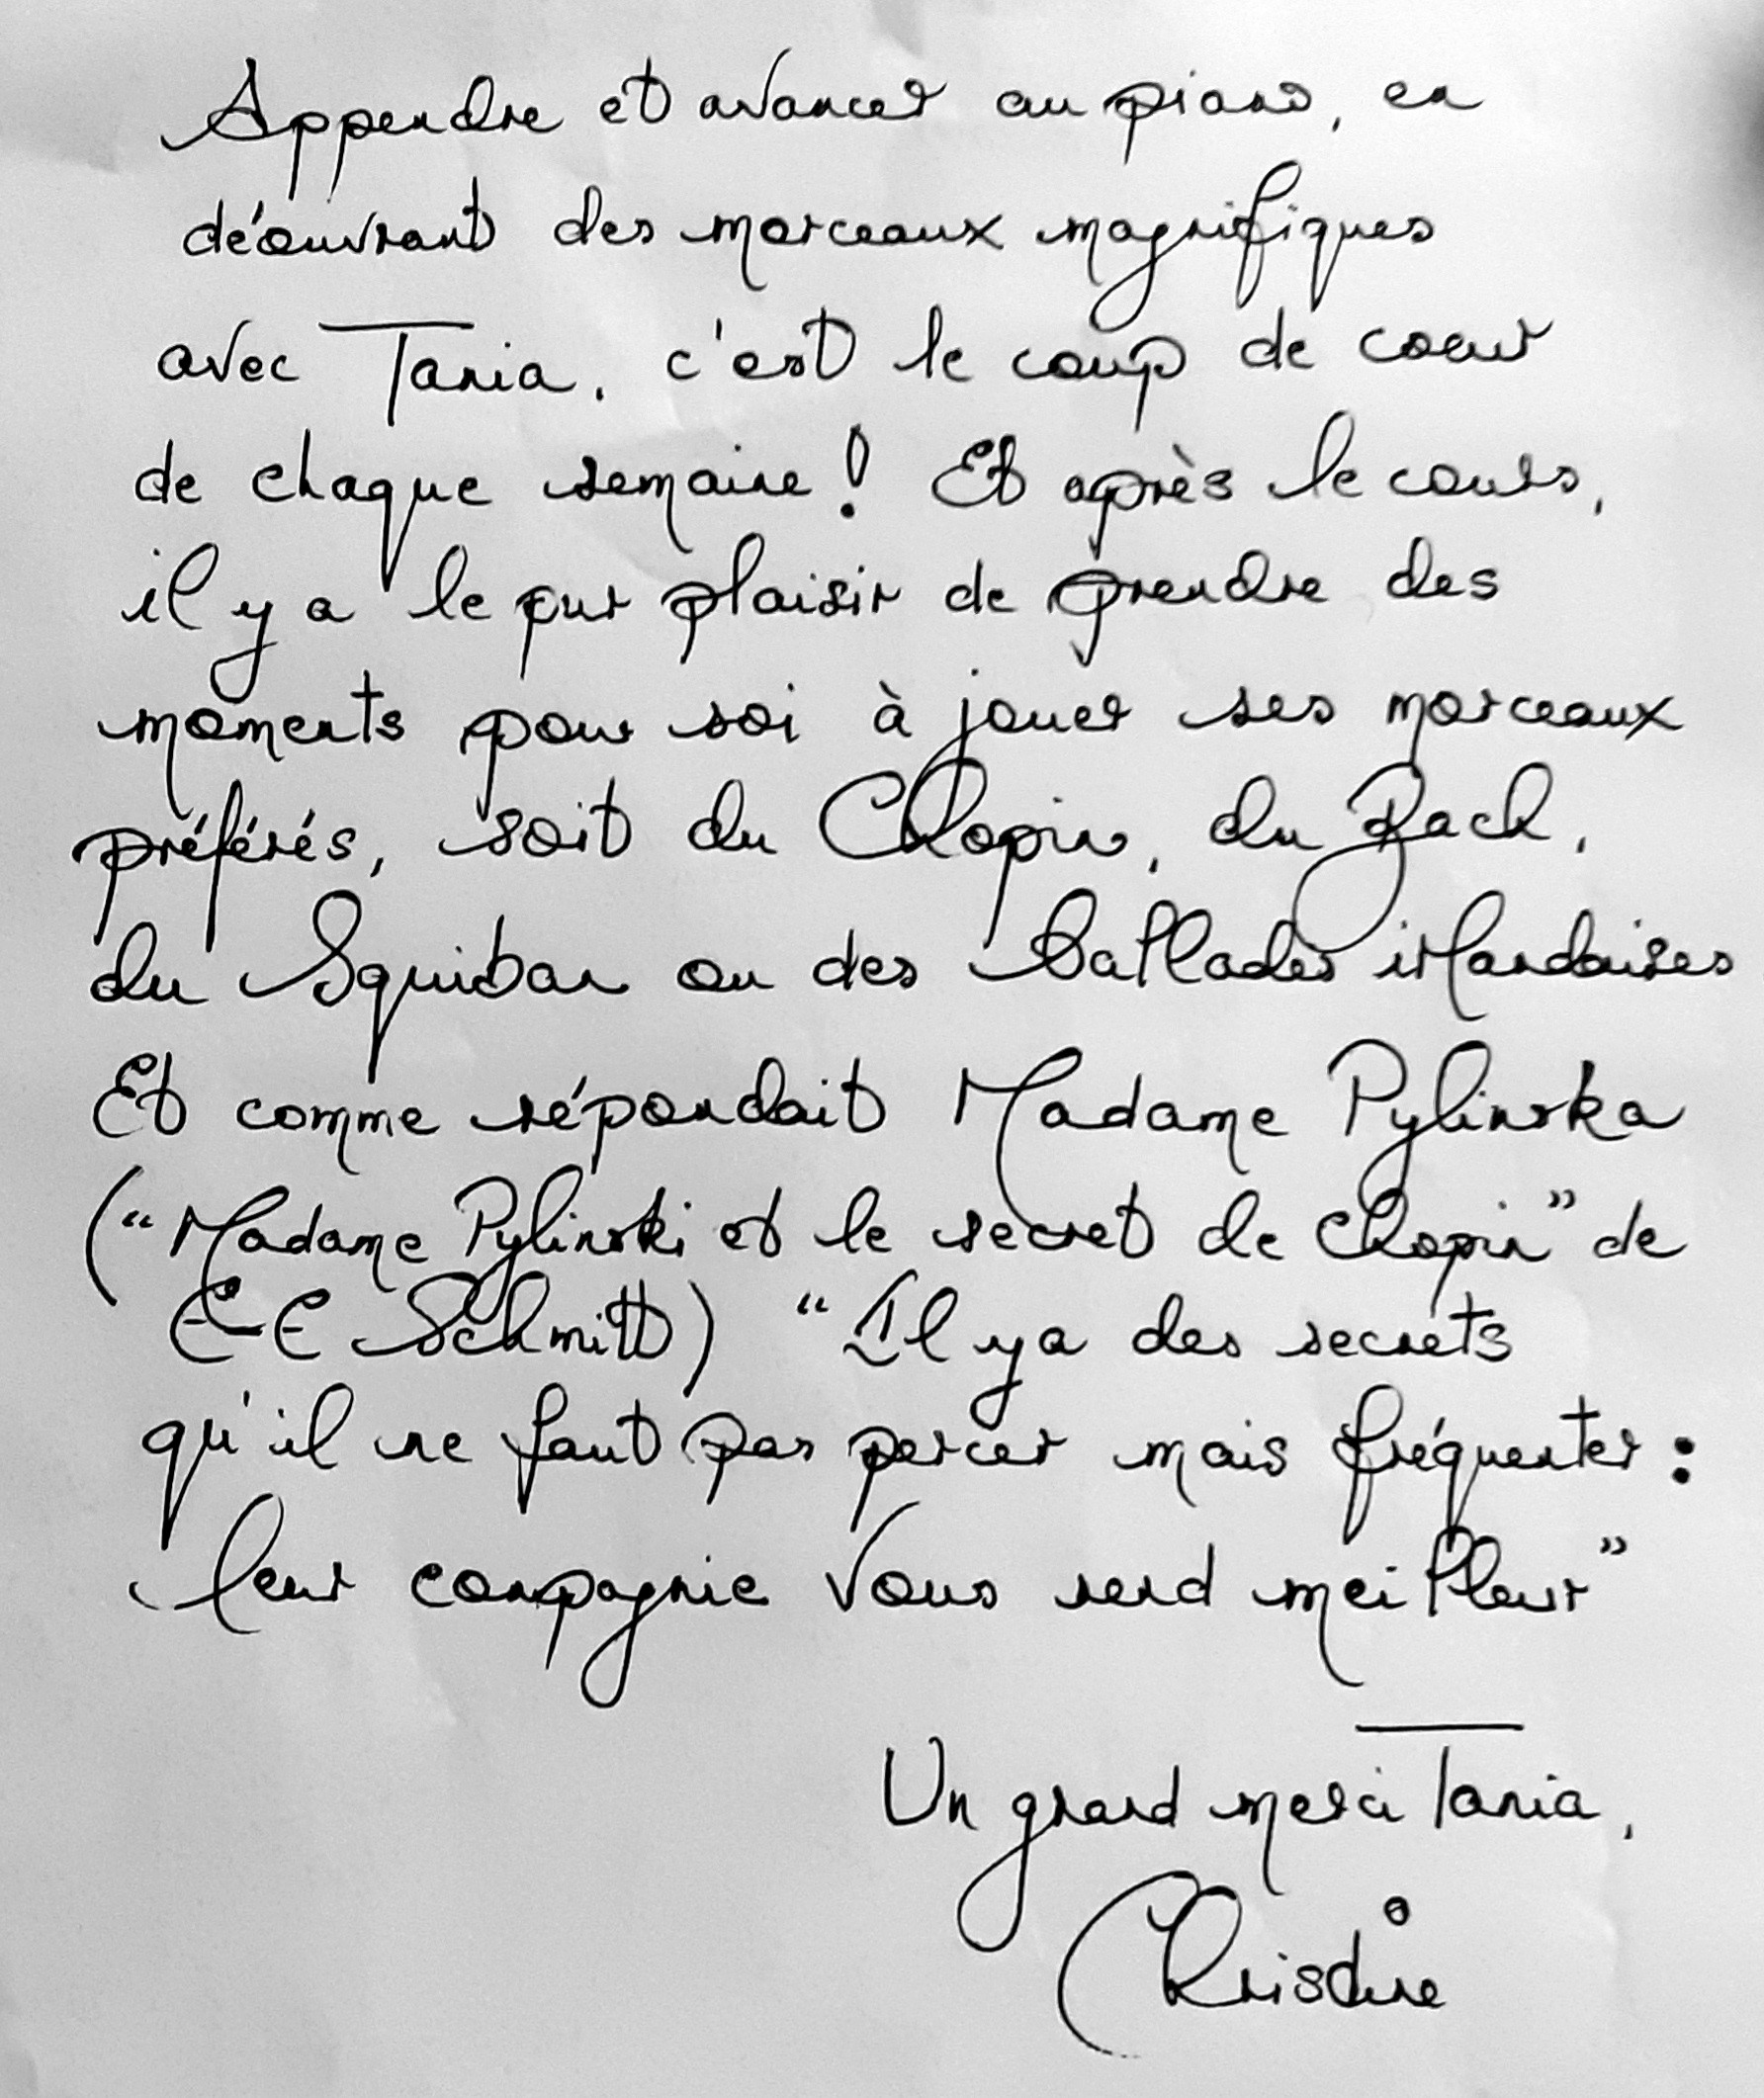 Appendre et avancer au piano, en
déouvrant des morceaux magnifiques
avec Tania, c'est le coup de coeur
de chaque semaine ! Et après le cours,
il y a le pur plaisir de prendre des
moments pour soi à jouer ses morceaux
préférés, soit du Chopin, du Bach,
du Squiban ou des ballades irlandaises
Et comme répondait Madame Pylinska
("Madame Pylinski et le secret de Chopin" de
E-E Schmitt) "Il y a des secrets
qu'il ne faut pas percer mais fréquenter :
leur compagnie vous rend meilleur"
Un grand merci Tania,
Christine